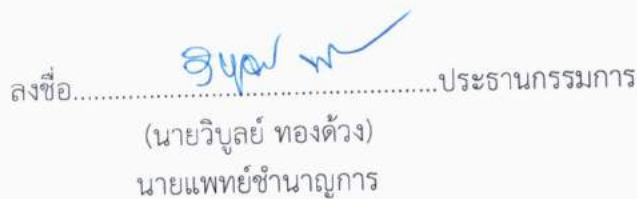 ลงชื่อ..................................................ประธานกรรมการ
(นายวิบูลย์ ทองด้วง)
นายแพทย์ชำนาญการ